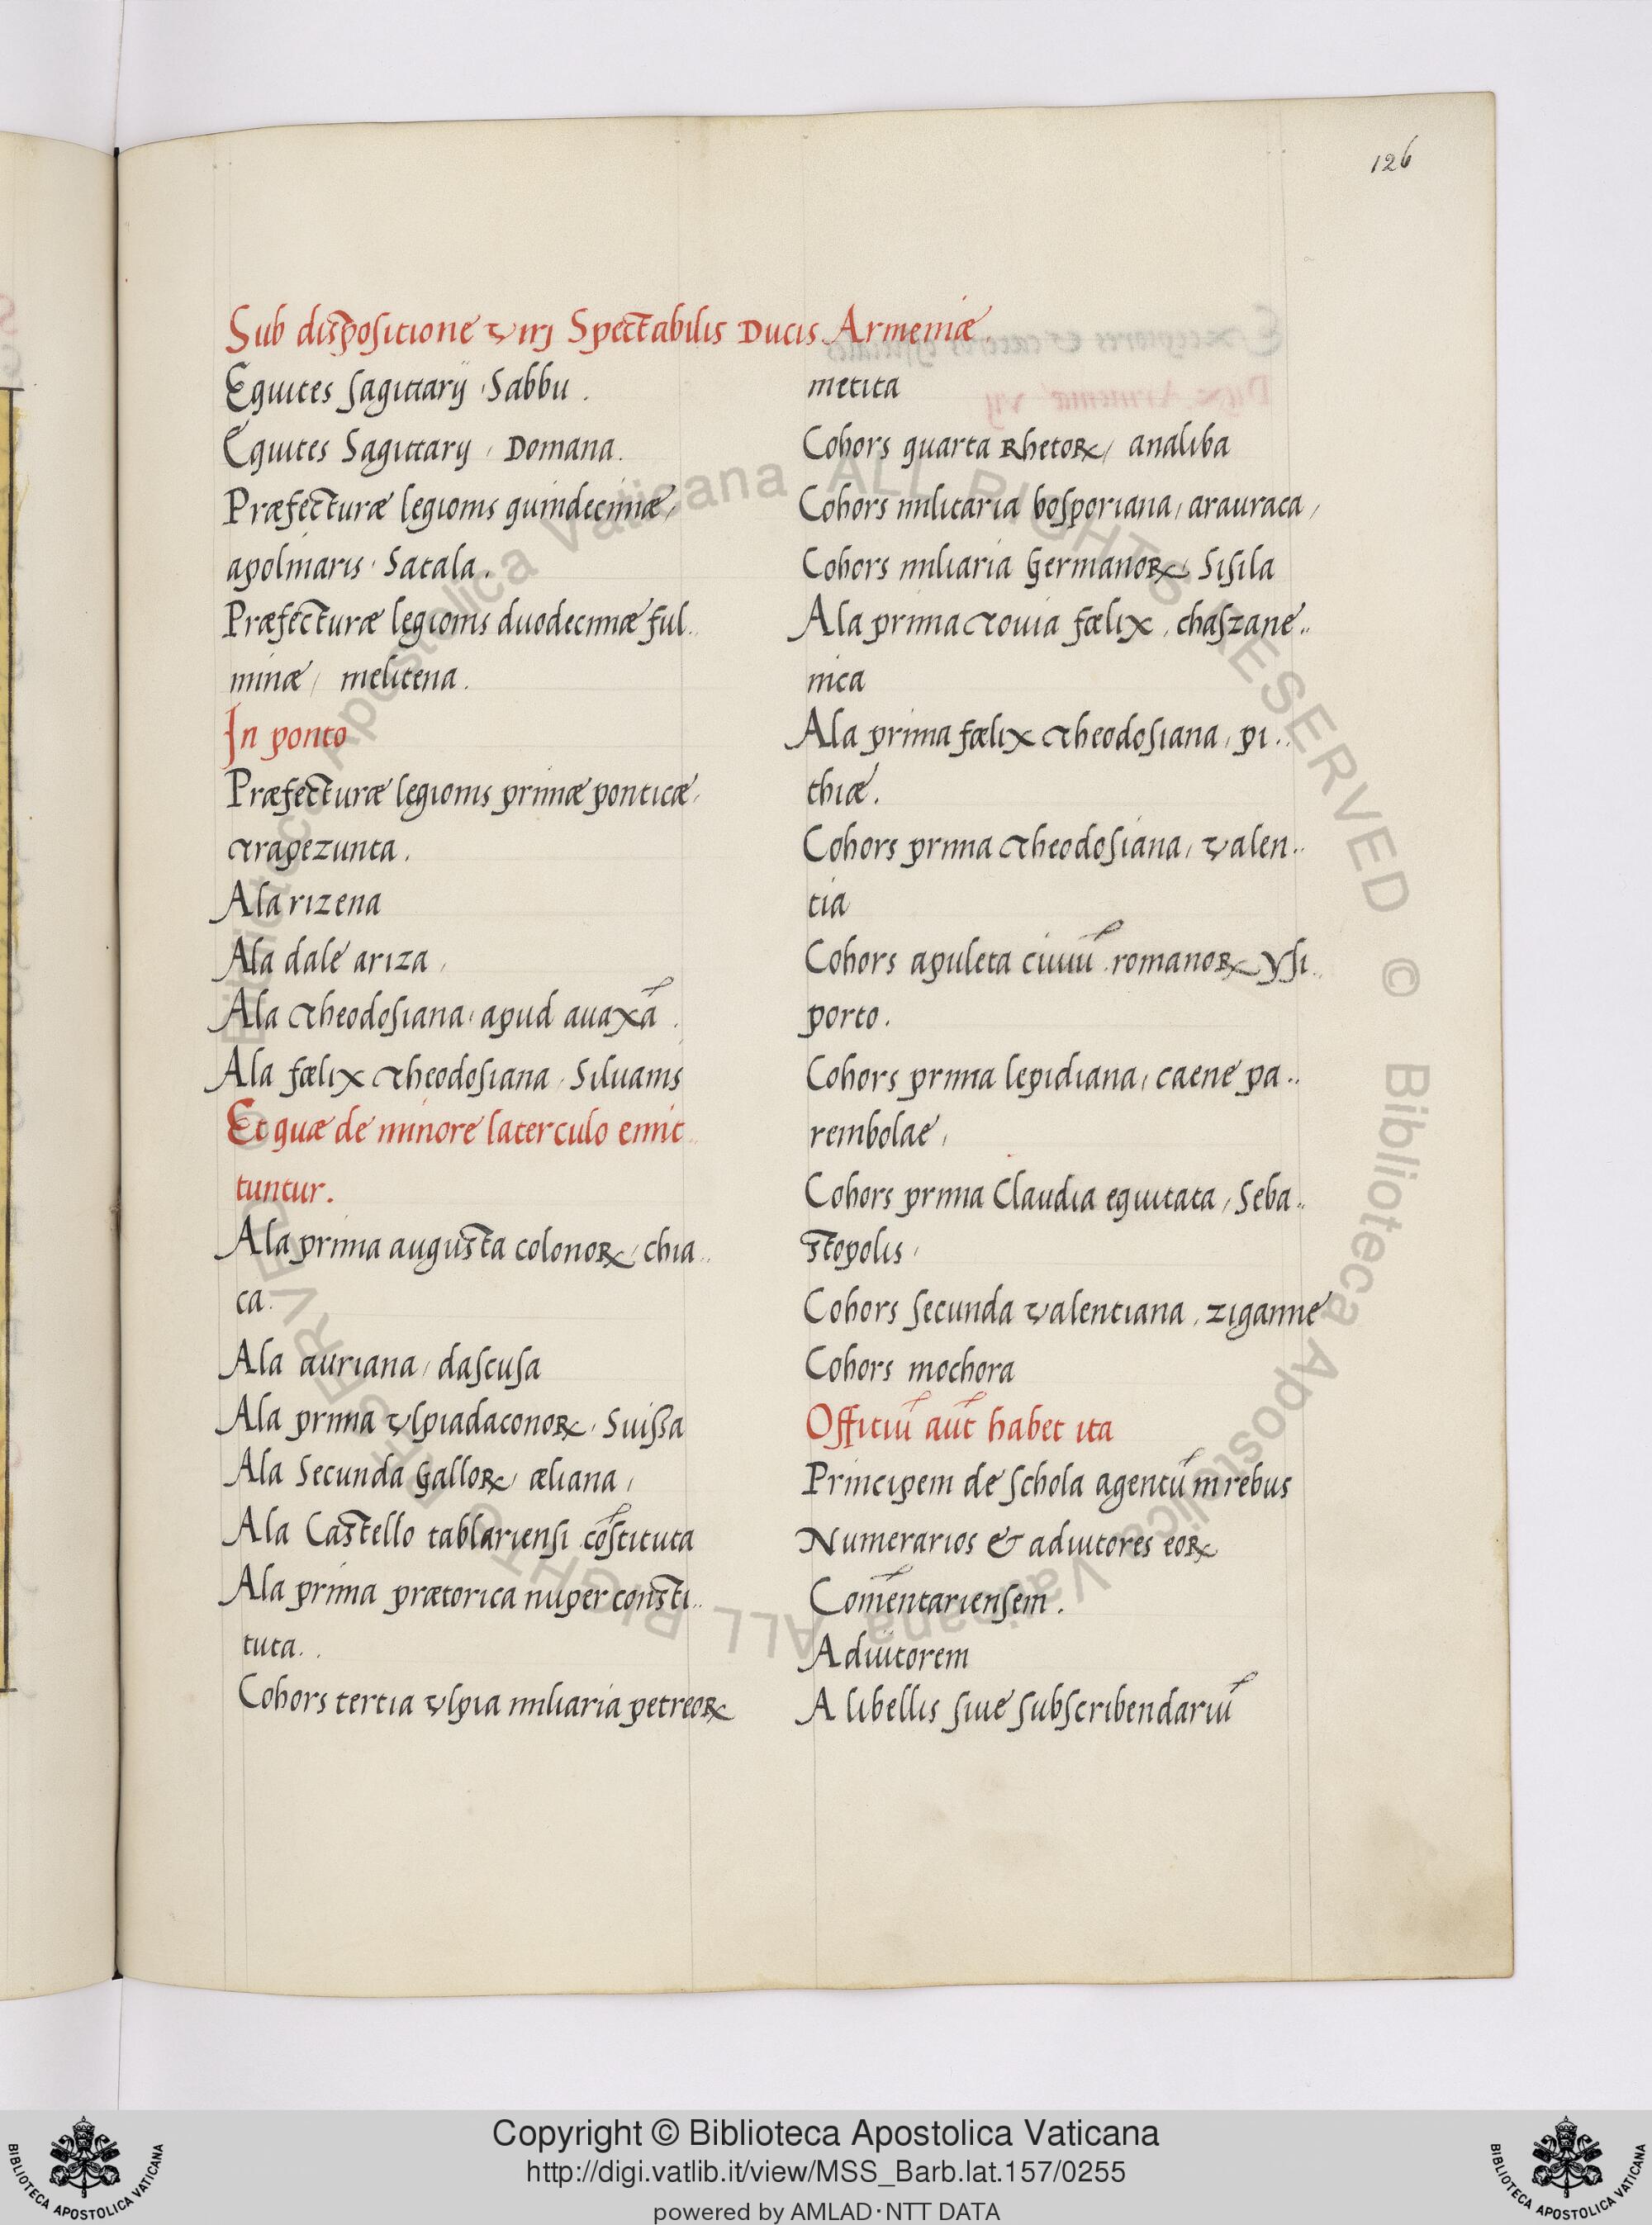 126
Sub dispositione virj Spectabilis Ducis Armeniæ.
Equites sagittarij Sabbu.
Equites Sagittarij, Domana.
Præfecturæ legionis quindecimæ,
apolinaris. Satala.
Præfecturæ legionis duodecimæ ful..
minæ, melitena.
In ponto
Præfecturæ legionis primæ ponticæ,
trapezunta.
Ala rizena
Ala dale ariza,
Ala theodosiana, apud auaxā.
Ala fœlix theodosiana, Siluanis
Et quæ de minore laterculo emit..
tuntur.
Ala prima augusta colonoꝝ, chia..
ca.
Ala auriana, dascusa
Ala prima vlpiadaconoꝝ. Suissa
Ala Secunda Galloꝝ, æliana,
Ala Castello tablariensi cōstituta
Ala prima prætorica nuper consti..
tuta..
Cohors tertia vlpia miliaria petreoꝝ
metita
Cohors quarta Rhetoꝝ, analiba
Cohors militaria bosporiana, arauraca,
Cohors miliaria Germanoꝝ, Sisila
Ala prima iouia fœlix, chaszane..
nica
Ala prima fœlix theodosiana, pi..
thiæ.
Cohors prima theodosiana, valen..
tia
Cohors apuleta ciuiū romanoꝝ ysi..
porto.
Cohors prima lepidiana, caene pa..
rembolae,
Cohors prima Claudia equitata, Seba..
stopolis,
Cohors secunda valentiana, ziganne
Cohors mochora
Officiū aūt habet ita
Principem de schola agentū in rebus
Numerarios & adiutores eoꝝ
Com̄entariensem.
Adiutorem
A libellis siue subscribendariū
Biblioteca Apostolica Vaticana ALL RIGHTS RESERVED ©
Biblioteca Apostolica Vaticana ALL RIGHTS RESERVED ©
BIBLIOTECA APOSTOLICA VATICANA
Copyright © Biblioteca Apostolica Vaticana
http://digi.vatlib.it/view/MSS_Barb.lat.157/0255
powered by AMLAD·NTT DATA
BIBLIOTECA APOSTOLICA VATICANA